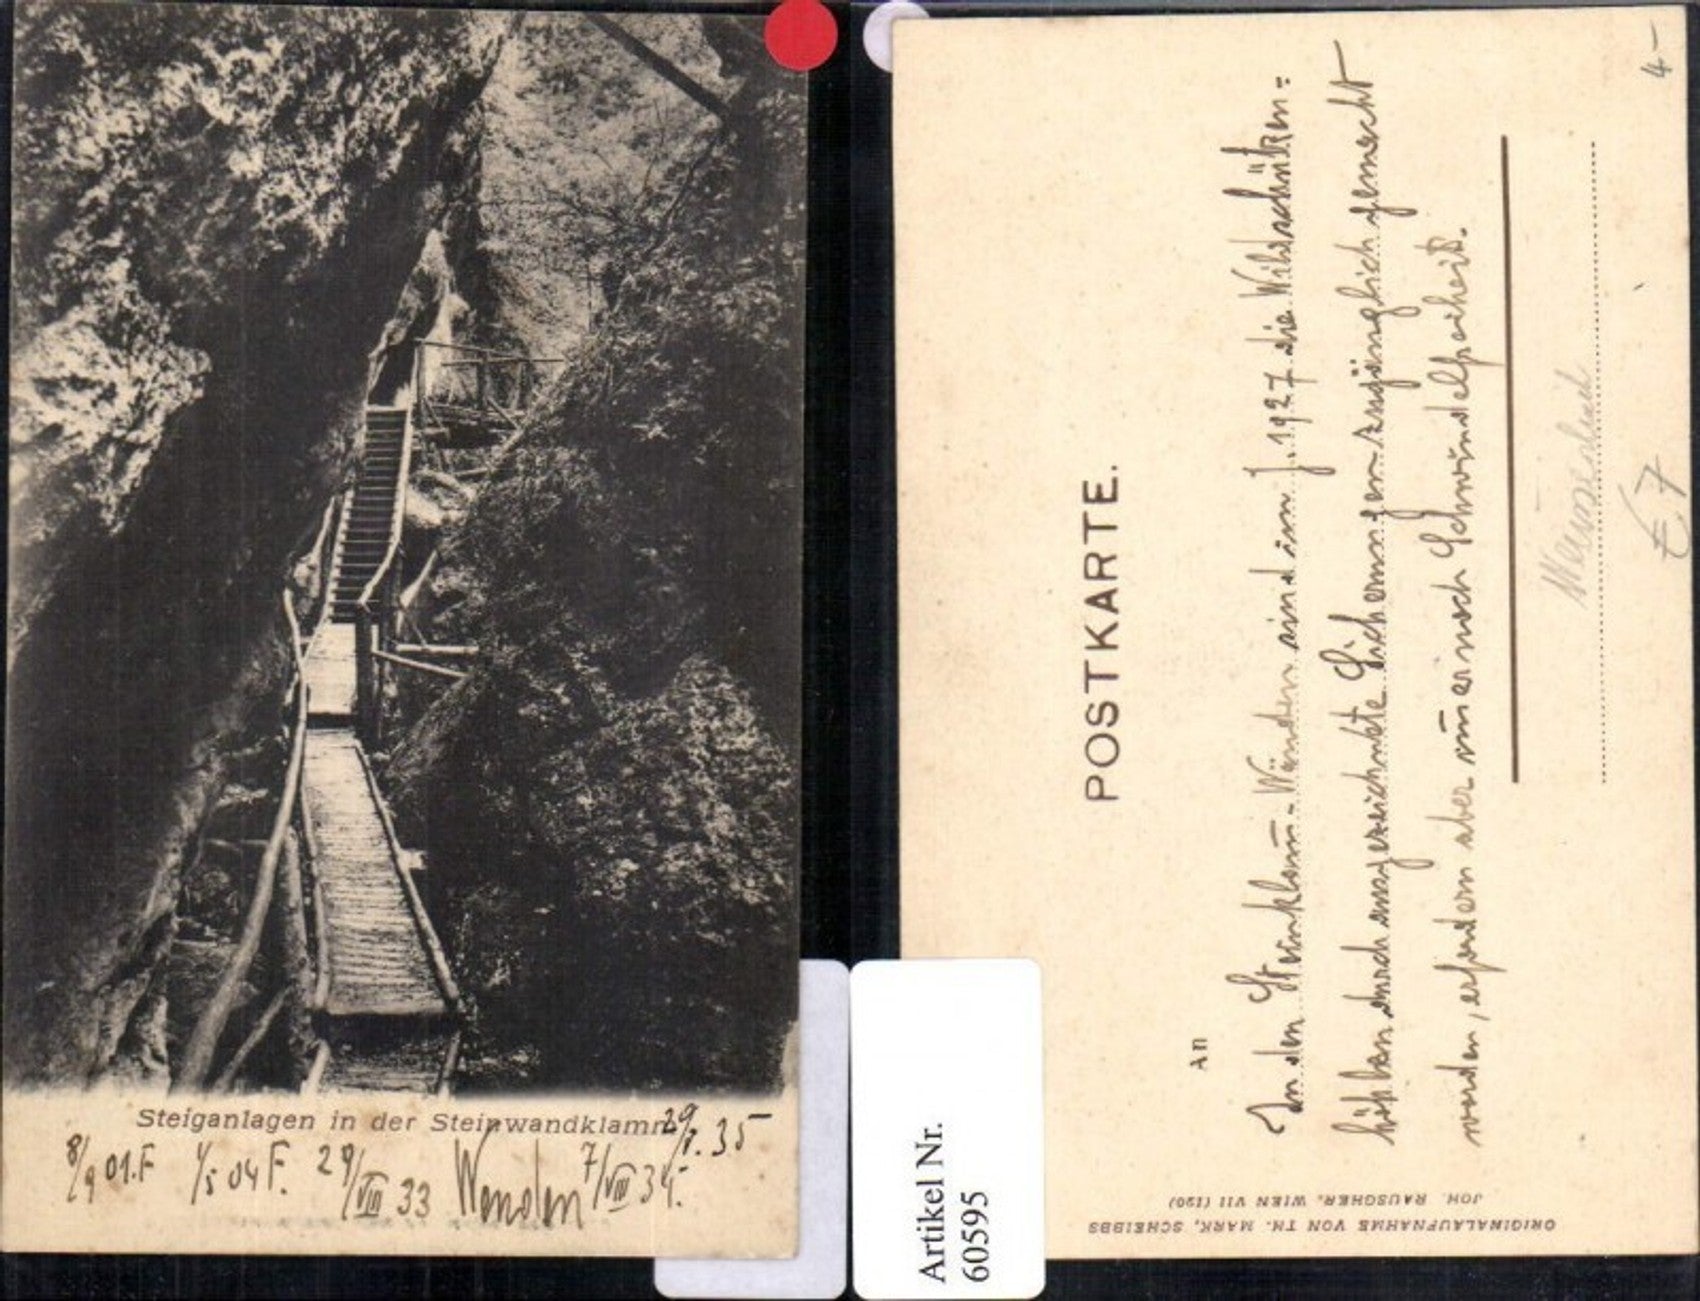 Steiganlagen in der Steinwandklamm
8/9 01. F 1/5 04 F. 29/VIII 33 Wenden 7/VIII 34. 29/7. 35
POSTKARTE.
An
In den Steinklam-Wänden sind im J. 1927 die Wildschützen=
höhlen durch ausgezeichnete Sicherungen zugänglich gemacht
worden, erfordern aber immer noch Schwindelfreiheit.
€ 7
4-
ORIGINALAUFNAHME VON TH. MARK, SCHEIBBS
JOH. RAUSCHER, WIEN VII (190)
Artikel Nr.
60595